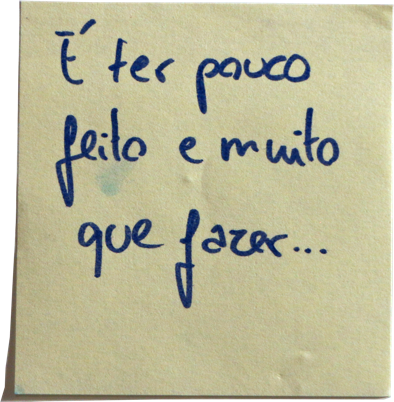 É ter pouco
feito e muito
que fazer...